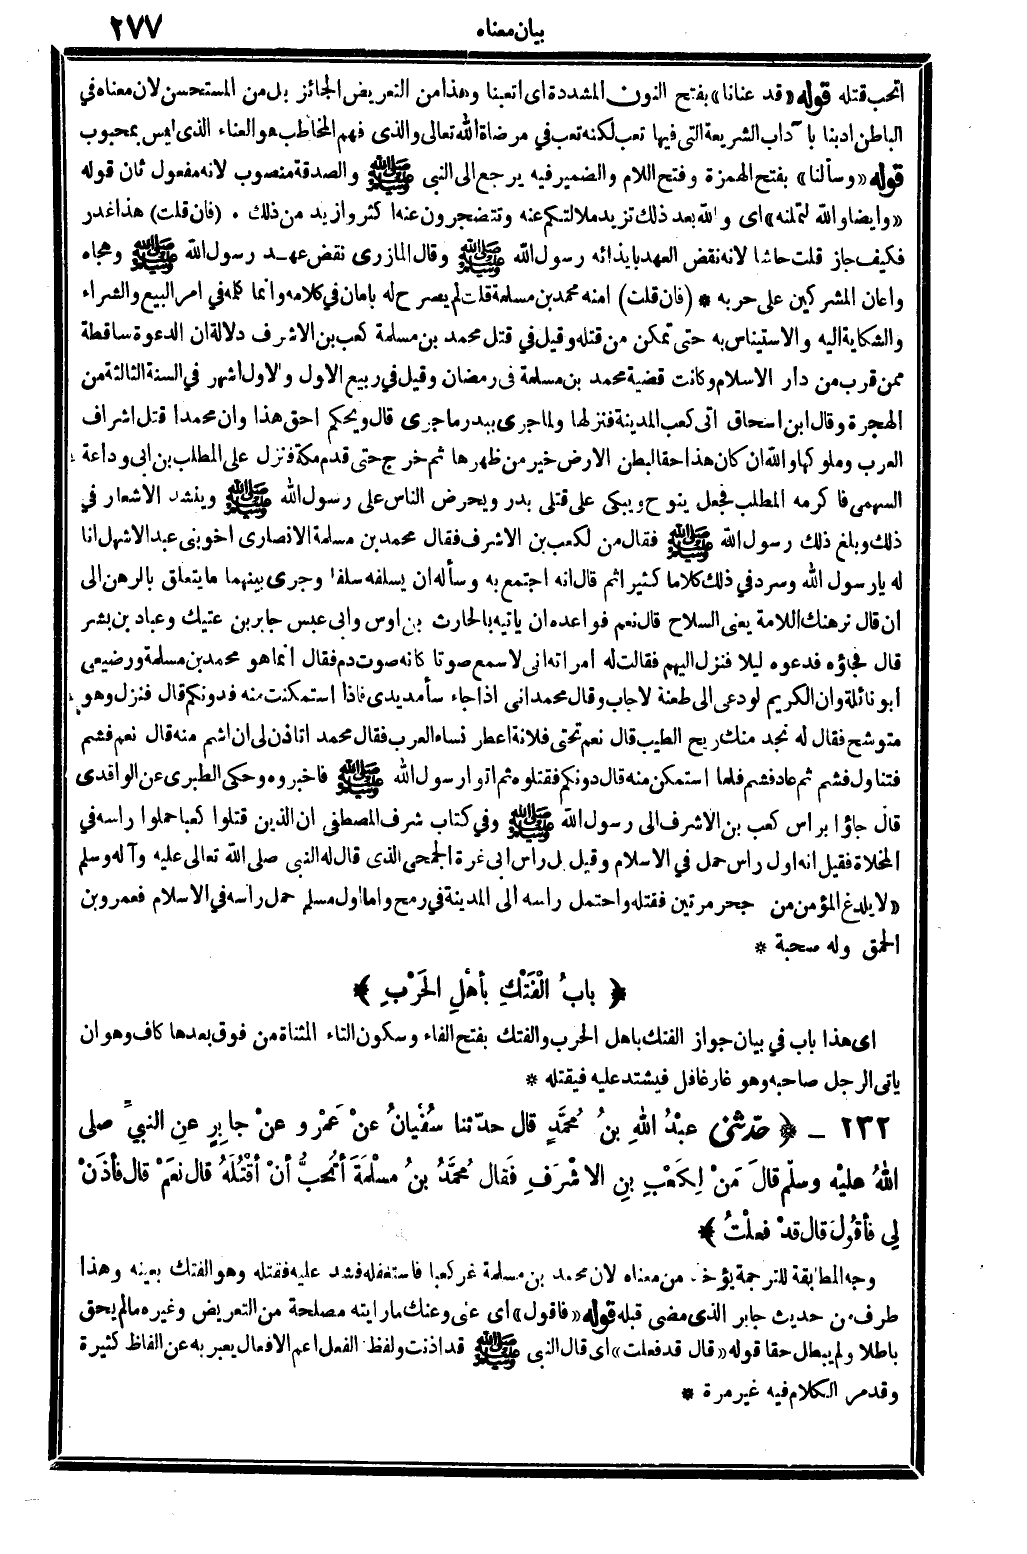 بيان معناه
٢٧٧
اتحب قتله قوله «قد عنانا» بفتح النون المشددة اى اتعبنا وهذا من التعريض الجائز بل من المستحسن لان معناه في
الباطن ادبنا بآداب الشريعة التى فيها تعب لكنه تعب في مرضاة الله تعالى والذى فهم المخاطب هو العناء الذى ليس بمحبوب
قوله «وسألنا» بفتح الهمزة وفتح اللام والضمير فيه يرجع الى النبى ﷺ والصدقة منصوب لانه مفعول ثان قوله
«وايضا والله لتملنه» اى والله بعد ذلك تزيد ملالتكم عنه وتتضجرون عنه اكثر وازيد من ذلك . (فان قلت) هذا غدر
فكيف جاز قلت حاشا لانه نقض العهد بايذائه رسول الله ﷺ وقال المازرى نقض عهد رسول الله ﷺ وهجاه
واعان المشركين على حربه * (فان قلت) امنه محمد بن مسلمة قلت لم يصرح له بامان في كلامه وانما كلمه في امر البيع والشراء
والشكاية اليه والاستيناس به حتى تمكن من قتله وقيل في قتل محمد بن مسلمة كعب بن الاشرف دلالة ان الدعوة ساقطة
ممن قرب من دار الاسلام وكانت قضية محمد بن مسلمة فى رمضان وقيل في ربيع الاول والاول اشهر في السنة الثالثة من
الهجرة وقال ابن اسحاق اتى كعب المدينة فنزلها ولما جرى ببدر ما جرى قال ويحكم احق هذا وان محمدا قتل اشراف
العرب وملوكها والله ان كان هذا حقا لبطن الارض خير من ظهرها ثم خرج حتى قدم مكة فنزل على المطلب بن ابى وداعة
السهمى فاكرمه المطلب فجعل ينوح ويبكى على قتلى بدر ويحرض الناس على رسول الله ﷺ وينشد الاشعار في
ذلك وبلغ ذلك رسول الله ﷺ فقال من لكعب بن الاشرف فقال محمد بن مسلمة الانصارى اخو بنى عبد الاشهل انا
له يارسول الله وسرد في ذلك كلاما كثيرا ثم قال انه اجتمع به وسأله ان يسلفه سلفا وجرى بينهما ما يتعلق بالرهن الى
ان قال نرهنك اللامة يعنى السلاح قال نعم فواعده ان ياتيه بالحارث بن اوس وابى عبس جابر بن عتيك وعباد بن بشر
قال فجاؤه فدعوه ليلا فنزل اليهم فقالت له امراته انى لاسمع صوتا كانه صوت دم فقال انما هو محمد بن مسلمة ورضيعى
ابو نائلة وان الكريم لو دعى الى طعنة لاجاب وقال محمد انى اذا جاء سأمد يدى فاذا استمكنت منه فدونكم قال فنزل وهو
متوشح فقال له نجد منك ريح الطيب قال نعم تحتى فلانة اعطر نساء العرب فقال محمد اتاذن لى ان اشم منه قال نعم فشم
فتناول فشم ثم عاد فشم فلما استمكن منه قال دونكم فقتلوه ثم اتوا رسول الله ﷺ فاخبروه وحكى الطبرى عن الواقدى
قال جاؤا براس كعب بن الاشرف الى رسول الله ﷺ وفي كتاب شرف المصطفى ان الذين قتلوا كعبا حملوا راسه في
المخلاة فقيل انه اول راس حمل في الاسلام وقيل بل راس ابى غرة الجمحى الذى قال له النبى صلى الله تعالى عليه وآله وسلم
«لا يلدغ المؤمن من جحر مرتين فقتله واحتمل راسه الى المدينة في رمح واما اول مسلم حمل راسه في الاسلام فعمرو بن
الحمق وله صحبة *
﴿ بابُ الْفَتْكِ بأهْلِ الحَرْبِ ﴾
اى هذا باب في بيان جواز الفتك باهل الحرب والفتك بفتح الفاء وسكون التاء المثناة من فوق بعدها كاف وهو ان
ياتى الرجل صاحبه وهو غار غافل فيشتد عليه فيقتله *
٢٣٢ ـ ﴿ حدّثنى عبْدُ اللهِ بنُ مُحمَّدٍ قال حدّثنا سُفْيانُ عنْ عَمْرٍو عنْ جابِرٍ عنِ النبيِّ صلى
اللهُ عليْه وسلّم قالَ مَنْ لِكَعْبِ بنِ الاشْرَفِ فَقال مُحمَّدُ بنُ مسْلَمَةَ أتُحِبُّ أنْ أقْتُلَهُ قال نعَمْ قال فأذَنْ
لِي فأقُولَ قال قدْ فعلْتُ ﴾
وجه المطابقة للترجمة يؤخذ من معناه لان محمد بن مسلمة غر كعبا فاستغفله فشد عليه فقتله وهو الفتك بعينه وهذا
طرف من حديث جابر الذى مضى قبله قوله «فاقول» اى عنى وعنك ما رايته مصلحة من التعريض وغيره مالم يحق
باطلا ولم يبطل حقا قوله «قال قد فعلت» اى قال النبى ﷺ قد اذنت ولفظ الفعل اعم الافعال يعبر به عن الفاظ كثيرة
وقد مر الكلام فيه غير مرة *